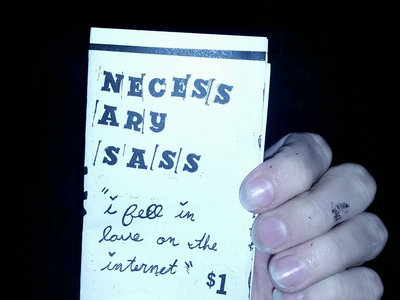 NECESS
ARY
SASS
"i fell in
love on the
internet"
$1